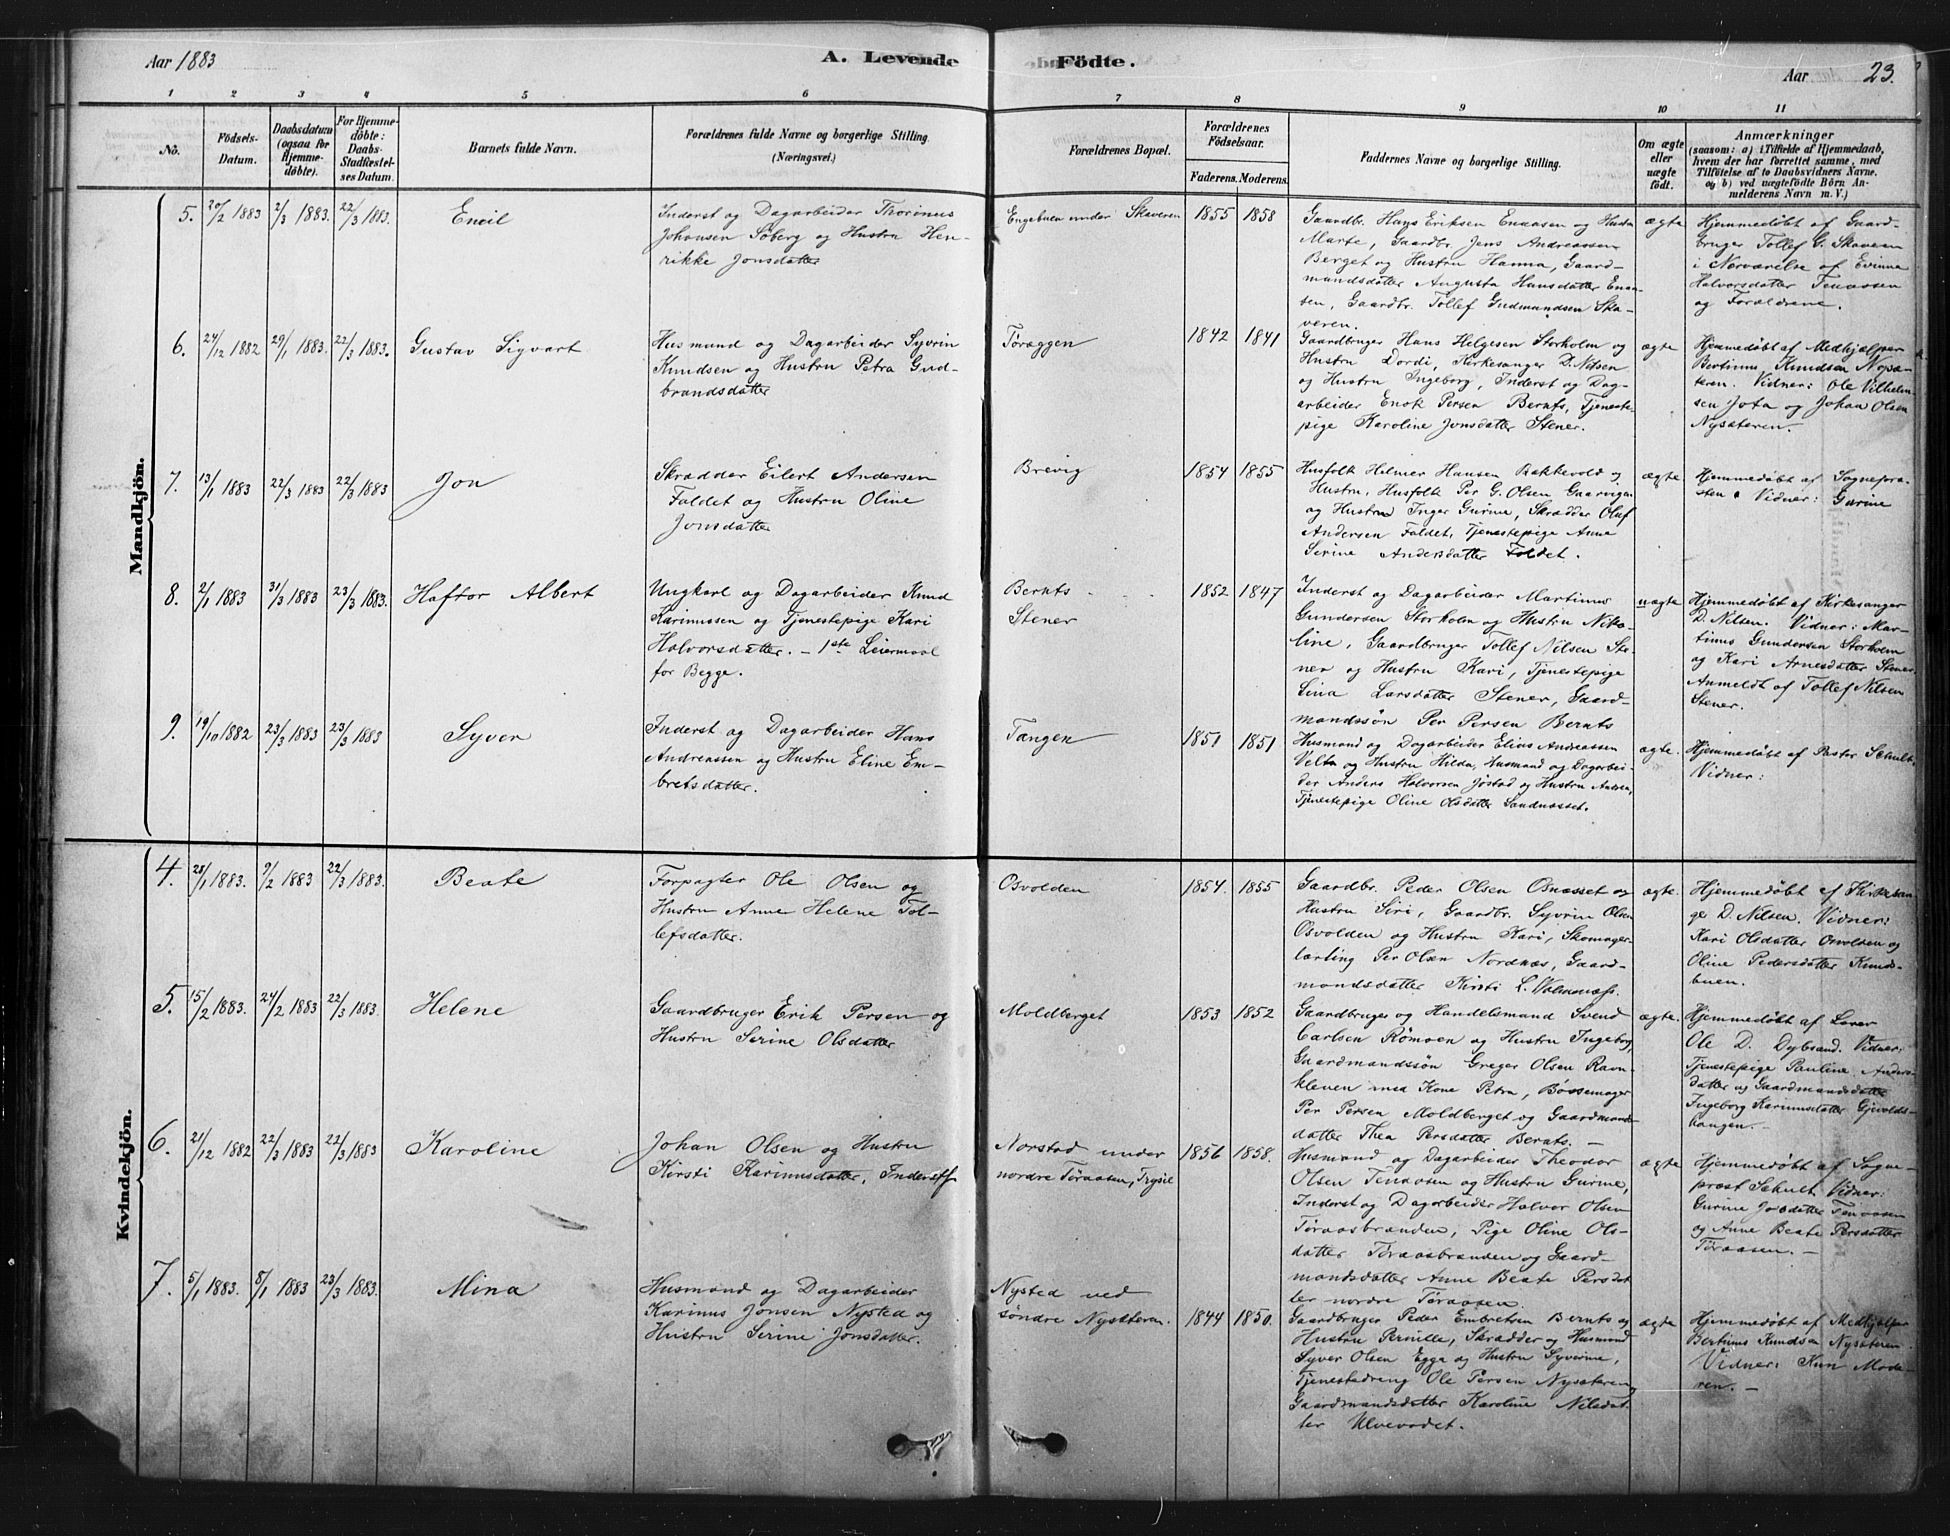 Aar 1883
A. Levende Födte.
Aar 23.
1 2 3 4 5 6 7 8 9 10 11
No.
Födsels-Datum.
Daabsdatum (ogsaa for Hjemmedöbte).
For Hjemmedöbte: Daabs-Stadfæstelses Datum.
Barnets fulde Navn.
Forældrenes fulde Navne og borgerlige Stilling.
(Næringsvei.)
Forældrenes Bopæl.
Forældrenes Födselsaar.
Faderens. Moderens.
Faddernes Navne og borgerlige Stilling.
Om ægte eller uægte födt.
Anmærkninger
(saasom: a) i Tilfælde af Hjemmedaab,
hvem der har forrettet samme, med
Tilföielse af to Daabsvidners Navne,
og b) ved uægtefödte Börn Anmelderens Navn m. V.)
Mandkjön.
5. 20/2 1883 2/3 1883. 22/3 1883. Emil
Inderst og Dagarbeider Thorinus
Johansen Söberg og Hustru Hen-
rikke Jonsdatter
Engebuen under Skaveren 1855 1858
Gaardbr. Hans Eriksen Enaasen og Hustru
Marte, Gaardbr. Jens Andreassen
Berget og Hustru Hanna, Gaard-
mandsdatter Augusta Hansdatter Enaa-
sen, Gaardbr. Tollef Gudmundsen Ska-
veren.
ægte
Hjemmedöbt af Gaard-
bruger Tollef G. Skaveren
i Nærværelse af Evinna
Halvorsdatter Tenaasen
og Forældrene.
6. 24/12 1882 29/1 1883. 22/3 1883. Gustav Sigvart
Husmand og Dagarbeider Syvrin
Knudsen og Hustru Petra Gud-
brandsdatter
Töraggen 1842 1841
Gaardbruger Hans Helgesen Storholm og
Hustru Dordi, Kirkesanger D. Nilsen
og Hustru Ingeborg, Inderst og Dag-
arbeider Enok Persen Bernts, Tjeneste-
pige Karoline Jonsdatter Stener.
ægte
Hjemmedöbt af Medhjælper
Bertinus Knudsen Nysæ-
teren. Vidner: Ole Vilhelm-
sen Jota og Johan Olsen
Nysæteren.
7. 13/1 1883 22/3 1883 22/3 1883 Jon
Skrædder Eilert Andersen
Faldet og Hustru Oline
Jonsdatter
Brevig 1854 1855
Husfolk Helmer Hansen Bakkevold og
Hustru, Husfolk Per G. Olsen
og Hustru Inger Gurine, Skrædder Oluf
Andersen Faldet, Tjenestepige Anne
Serine Andersdatter Faldet.
ægte
Hjemmedöbt af Sognepræ-
sten. Vidner: Gurine
8. 2/1 1883 31/3 1883 23/3 1883. Haftor Albert
Ungkarl og Dagarbeider Knud
Karinussen og Tjenestepige Kari
Halvorsdatter. – 1ste Leiermaal
for Begge.
Bernts
Stener
1852 1847
Inderst og Dagarbeider Martinus
Gundersen Storholm og Hustru Niko-
line, Gaardbruger Tollef Nilsen Ste-
ner og Hustru Kari, Tjenestepige
Lina Larsdatter Stener, Gaard-
mandssön Per Persen Bernts
uægte
Hjemmedöbt af Kirkesanger
D. Nilsen. Vidner: Mar-
tinus Gundersen Storholm
og Kari Arnesdatter Stener.
Anmeldt af Tollef Nilsen
Stener.
9. 19/10 1882 23/3 1883 23/3 1883 Syver
Inderst og Dagarbeider Hans
Andreassen og Hustru Eline Em-
bretsdatter.
Tangen 1851 1851
Husmand og Dagarbeider Elias Andreassen
Velta og Hustru Hilda, Husmand og Dagarbei-
der Anders Halvorsen Jöstad og Hustru
Tjenestepige Oline Olsdatter Sandnæsset.
ægte.
Hjemmedöbt af Pastor Schult.
Vidner:
Kvindekjön.
4. 28/1 1883. 9/2 1883 22/3 1883. Beate
Forpagter Ole Olsen og
Hustru Anne Helene Tol-
lefsdatter.
Osvolden 1854. 1855
Gaardbr. Peder Olsen Osnæsset og
Hustru Siri, Gaardbr. Syvrin Olsen
Osvolden og Hustru Kari, Skomager-
lærling Per Olsen Nordnæs, Gaard-
mandsdatter Kirsti L.
ægte.
Hjemmedöbt af Kirkesan-
ger D. Nilsen. Vidner:
Kari Olsdatter Osvolden og
Oline Pedersdatter Knuds-
buen.
5. 15/2 1883. 24/2 1883 22/3 1883. Helene
Gaardbruger Erik Persen og
Hustru Serine Olsdatter
Moldberget 1853 1852
Gaardbruger og Handelsmand Svend
Carlsen Römoen og Hustru Ingeborg,
Gaardmandssön Greger Olsen Ravn-
kleven med Kone Petra, Bössemager
Per Persen Moldberget og Gaardmands-
datter Thea Persdatter Bernts. –
ægte.
Hjemmedöbt af Lærer
Ole D. Dybsand. Vidner:
Tjenestepige Pauline Anders-
datter og Gaardmandsdatter
Ingeborg Karinusdatter Gjevolds-
haugen. –
6. 21/12 1882 22/3 1883 22/3 1883 Karoline
Johan Olsen og Hustru
Kirsti Karinusdatter, Inderstf.
Norstad under
nordre Töraasen, Trysil
1856 1858.
Husmand og Dagarbeider Theodor
Olsen Tenaasen og Hustru Gurine,
Inderst og Dagarbeider Halvor Olsen
Töraasbranden, Pige Oline Ols-
datter Töraasbranden og Gaard-
mandsdatter Anne Beate Persdat-
ter nordre Töraasen.
ægte
Hjemmedöbt af Sogne-
præst Schult. Vidner:
Gurine Tenaasen
og Anne Beate Persdatter
Töraasen. –
7. 5/1 1883. 8/1 1883 23/3 1883. Mina
Husmand og Dagarbeider
Karinus Jonsen Nysted og
Hustru Serine Jonsdatter.
Nysted ved
söndre Nysæteren.
1844 1850.
Gaardbruger Peder Embretsen Bernts og
Hustru Pernille, Skrædder og Husmand
Syver Olsen Egge og Hustru Syverine,
Tjenestedreng Ole Persen Nysæteren,
Gaardmandsdatter Karoline Nilsdat-
ter Ulvevadet.
ægte
Hjemmedöbt af Medhjælper
Bertinus Knudsen Nysæteren.
Vidner: Kun Mode-
ren. –